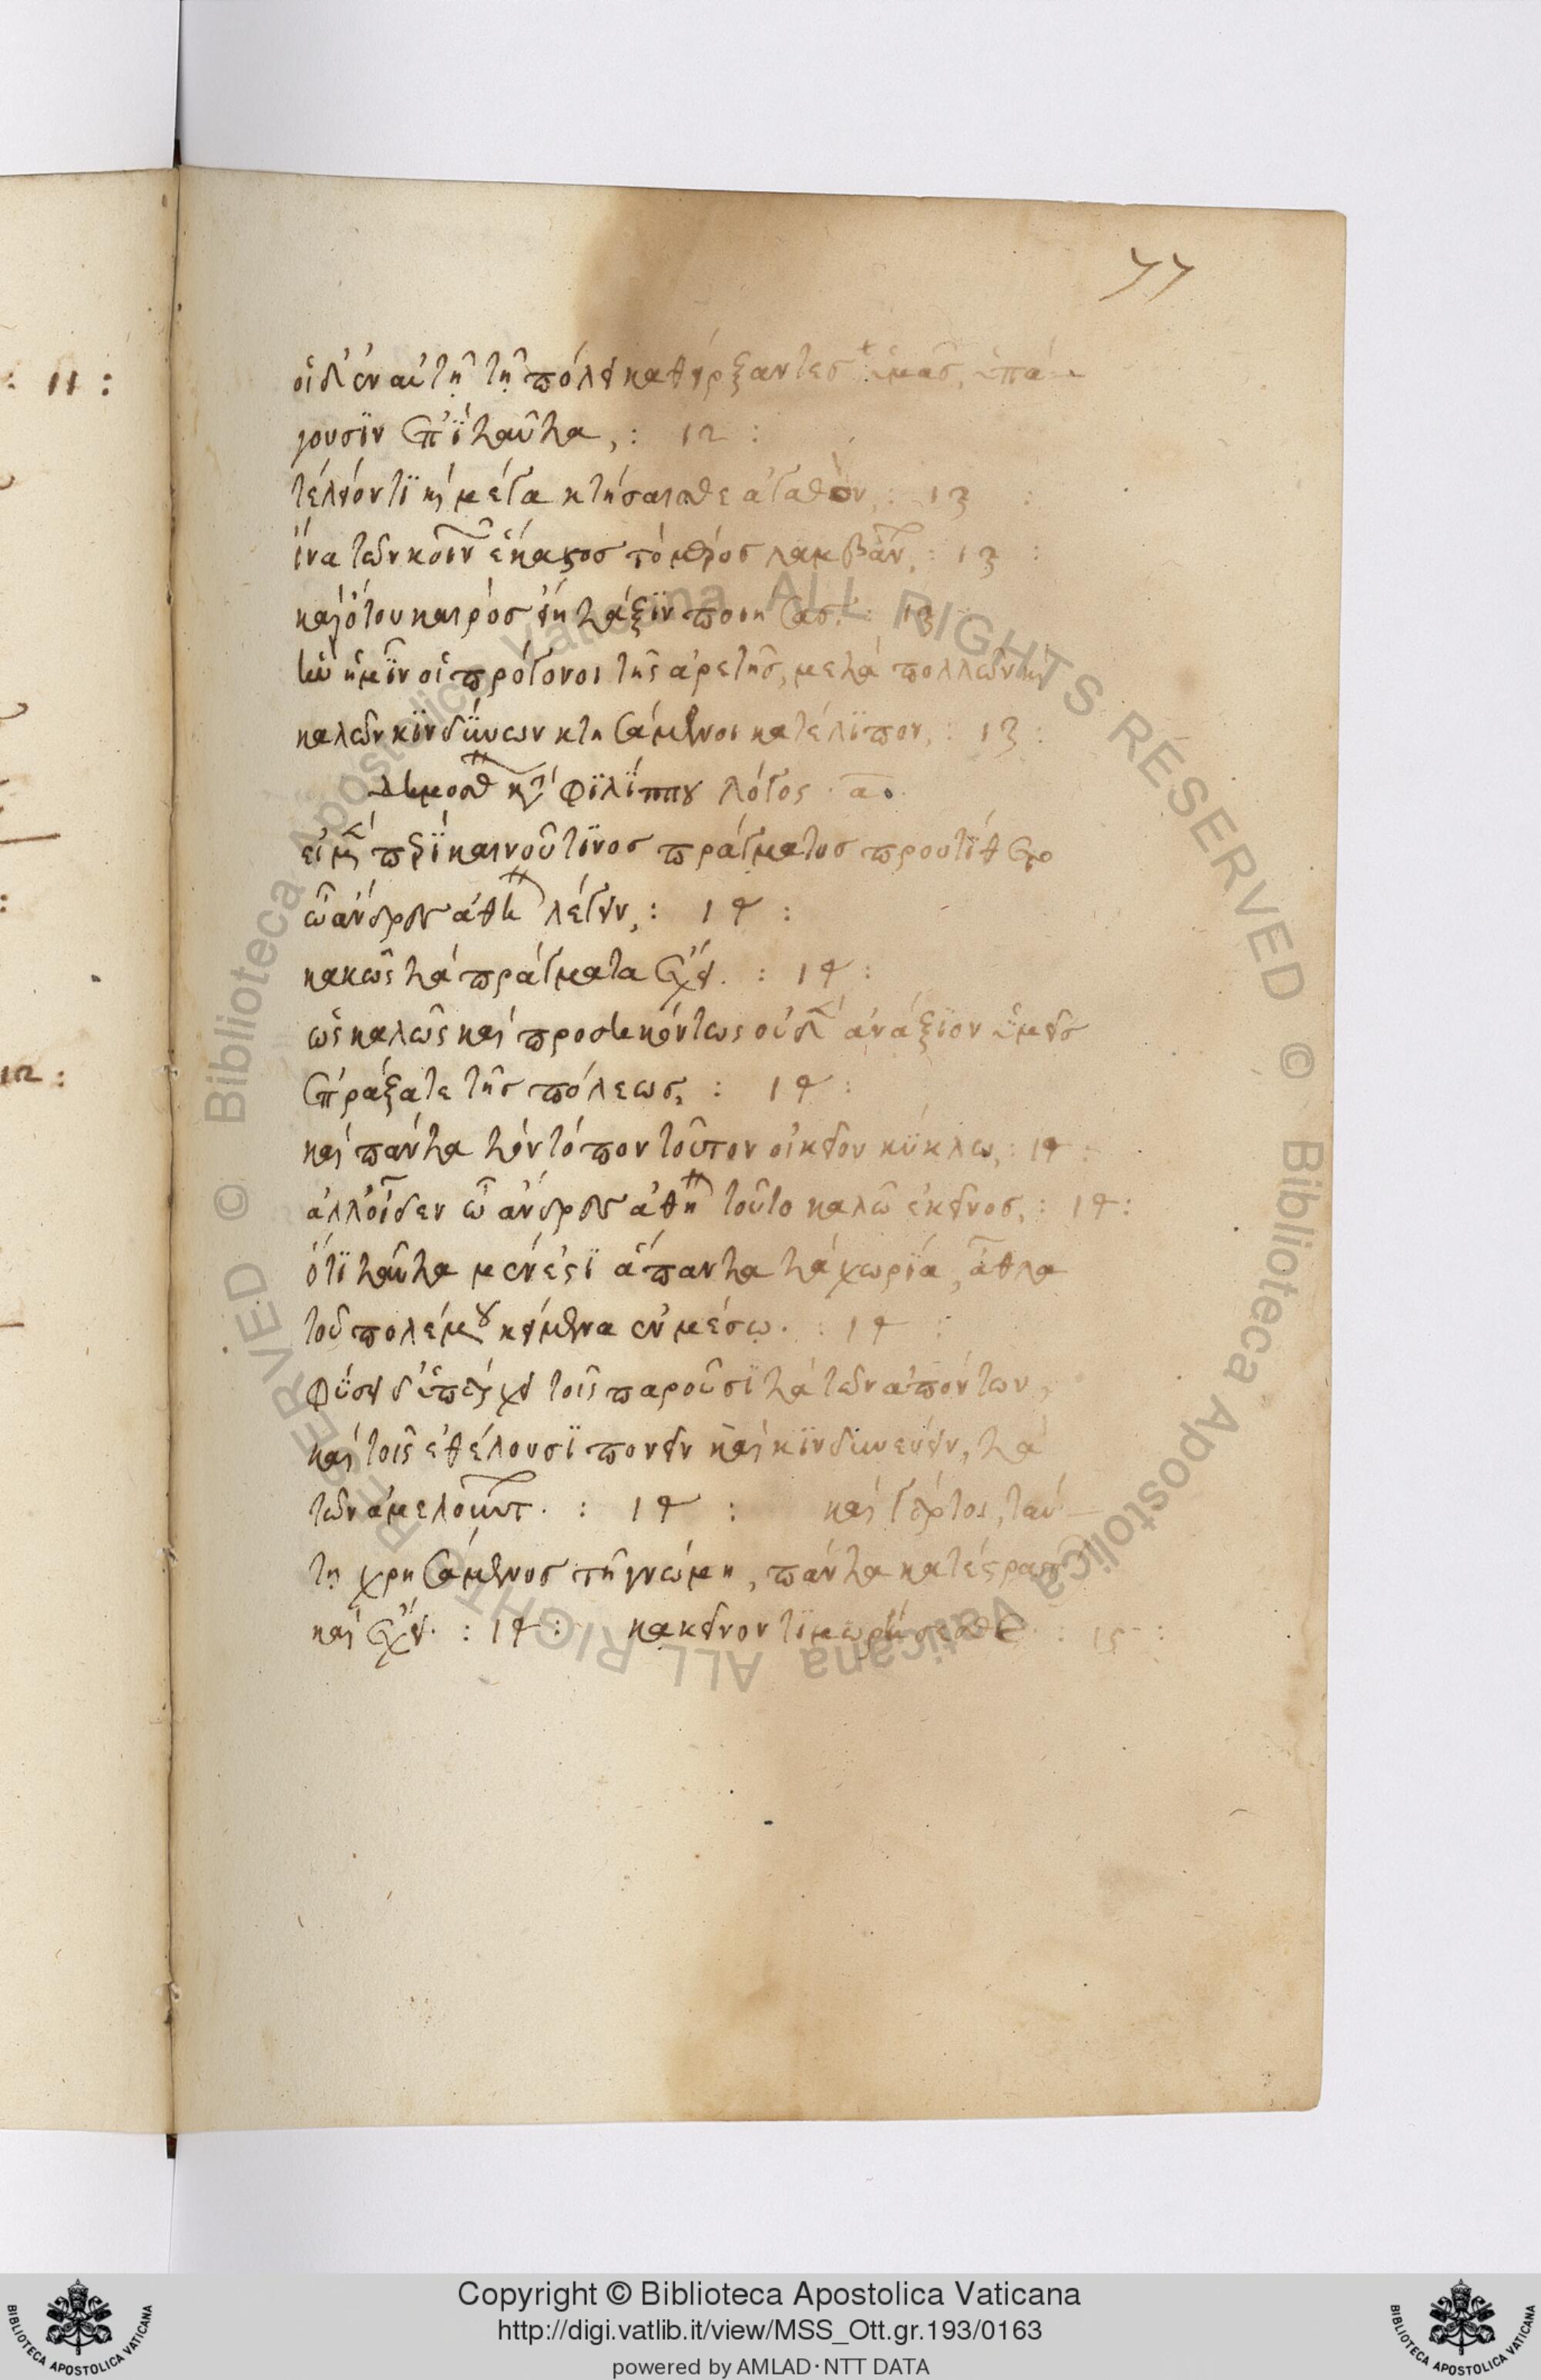 77
: 11 :
οἱ δ' ἐν αὐτῇ τῇ πόλει καθείρξαντες ὑμᾶς, ἐπά-
γουσιν ἐπὶ ταῦτα, : 12 :
τελείόν τι καὶ μέγα κτήσαισθε ἀγαθὸν, : 13 :
ἵνα τῶν κοινῶν ἕκαστος τὸ μέρος λαμβάνων, : 13 :
καὶ ὅτου καιρὸς εἴη τάξιν ποιήσας. : 13
ἣν ἡμῖν οἱ πρόγονοι τῆς ἀρετῆς, μετὰ πολλῶν καὶ
καλῶν κινδύνων κτησάμενοι κατέλιπον, : 13 :
Δημοσθένους κατὰ Φιλίππου λόγος. α.
εἰ μὲν περὶ καινοῦ τινος πράγματος προυτίθετο
ὦ ἄνδρες ἀθηναῖοι λέγειν, : 14 :
κακῶς τὰ πράγματα ἔχει. : 14 :
12 :
ὡς καλῶς καὶ προσηκόντως οὐδὲν ἀνάξιον ὑμεῖς
ἐπράξατε τῆς πόλεως, : 14 :
καὶ πάντα τὸν τόπον τοῦτον οἰκεῖον κύκλω, : 14 :
ἀλλ' οἶδεν ὦ ἄνδρες ἀθηναῖοι τοῦτο καλῶς ἐκεῖνος, : 14 :
ὅτι ταῦτα μέν ἐστιν ἅπαντα τὰ χωρία, ἆθλα
τοῦ πολέμου κείμενα ἐν μέσῳ. : 14 :
φύσει δ' ὑπάρχει τοῖς παροῦσι τὰ τῶν ἀπόντων,
καὶ τοῖς ἐθέλουσι πονεῖν καὶ κινδυνεύειν, τὰ
τῶν ἀμελούντων. : 14 : καὶ γάρ τοι, ταύ-
τῃ χρησάμενος τῇ γνώμη, πάντα κατέστραπται
καὶ ἔχει. : 14 : κακεῖνον τιμωρήσεσθε : 15 :
Copyright © Biblioteca Apostolica Vaticana
http://digi.vatlib.it/view/MSS_Ott.gr.193/0163
powered by AMLAD·NTT DATA